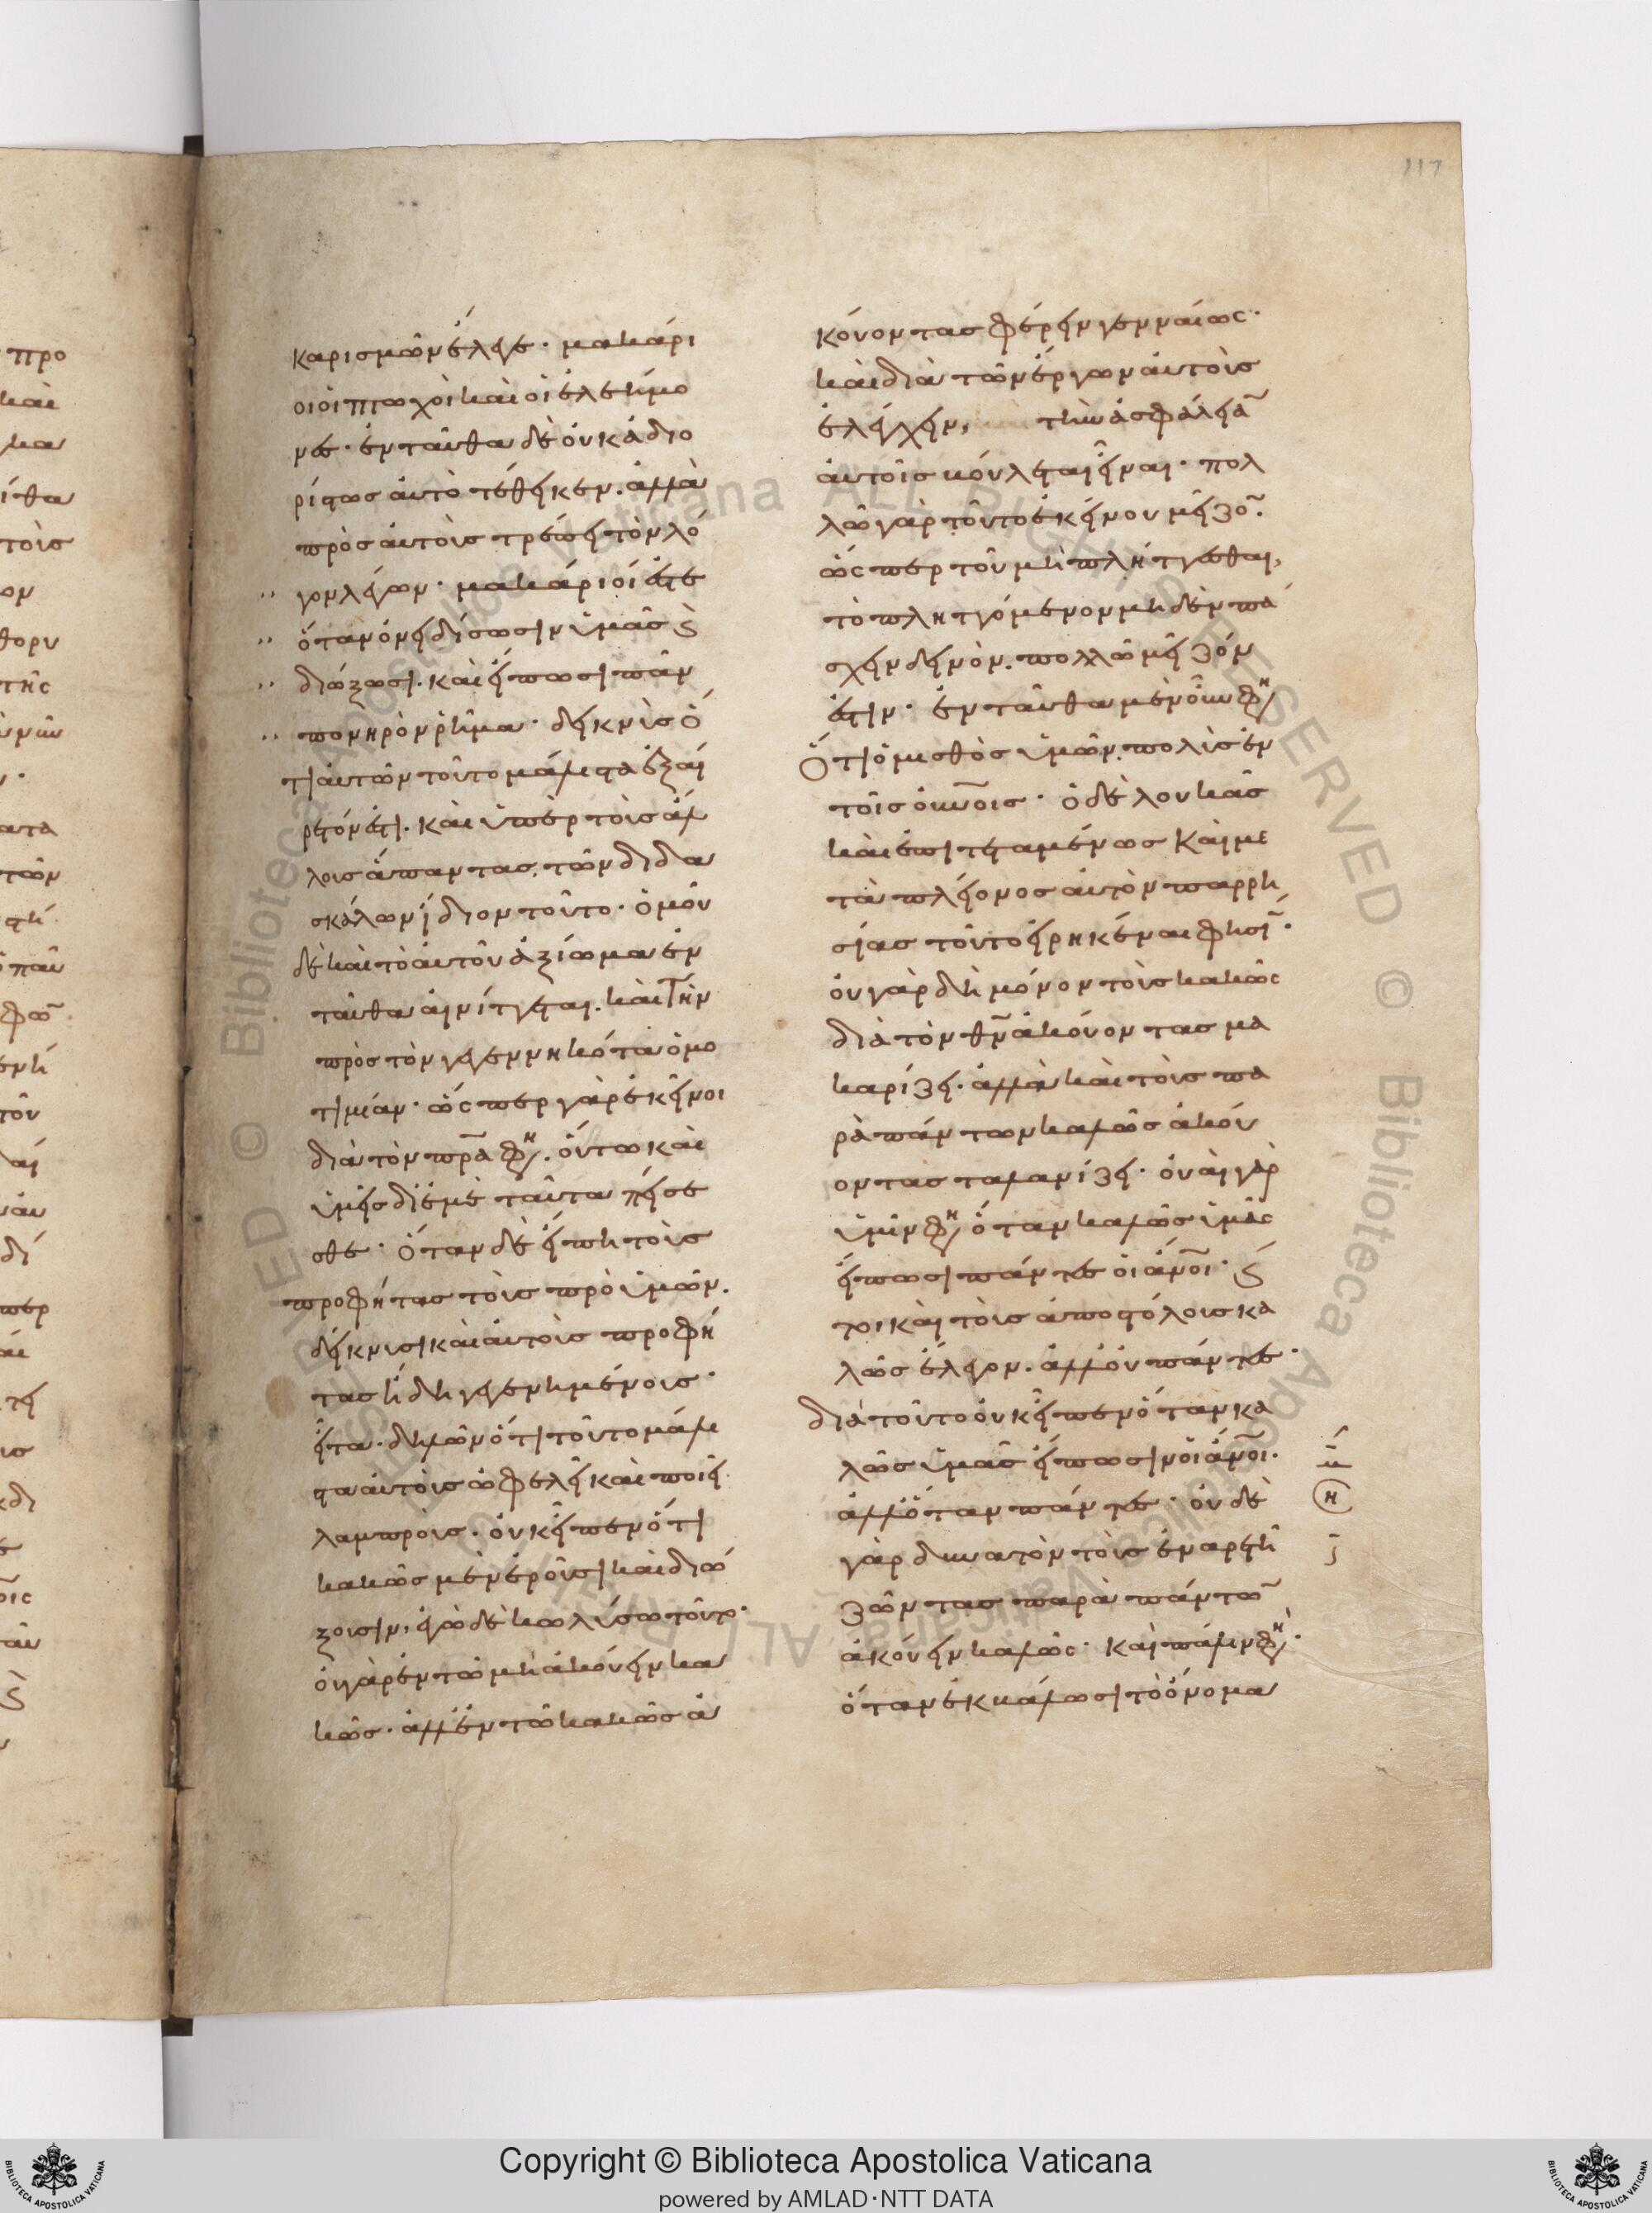 117
καρισμῶν ἔλεγε · μακάρι
οι οἱ πτωχοὶ καὶ οἱ ἐλεήμο
νες · ἐνταῦθα δὲ οὐκ ἀδιο
ρίστως αὐτὸ τέθεικεν · ἀλλὰ
πρὸς αὐτοὺς τρέπει τὸν λό
γον λέγων · μακάριοί ἐστε
ὅταν ὀνειδίσωσιν ὑμᾶς ϛ
διώξωσι · καὶ εἴπωσι πᾶν
πονηρὸν ῥῆμα · δεικνὺς ὅ
τι αὐτῶν τοῦτο μάλιστα ἐξαί
ρετόν ἐστι · καὶ ὑπὲρ τοὺς ἄλ
λους ἅπαντας τῶν διδα
σκάλων ἴδιον τοῦτο · ὁμοῦ
δὲ καὶ τὸ αὐτοῦ ἀξίωμα ἐν
ταῦθα αἰνίττεται · καὶ τὴν
πρὸς τὸν γεγεννηκότα ὁμο
τιμίαν · ὥσπερ γὰρ ἐκεῖνοι
διὰ τὸν πρ̅α φη · οὕτω καὶ
ὑμεῖς δι' ἐμὲ ταῦτα πείσε
σθε · ὅταν δὲ εἴπη τοὺς
προφήτας τοὺς πρὸ ὑμῶν ·
δείκνυσι καὶ αὐτοὺς προφή
τας ἤδη γεγενημένους ·
εἶτα · δηλῶν ὅτι τοῦτο μάλι
στα αὐτοὺς ὠφελεῖ καὶ ποιεῖ
λαμπροὺς · οὐκ εἶπεν ὅτι
κακῶς μὲν ἐροῦσι καὶ διώ
ξουσιν, ἐγὼ δὲ κωλύσω τοῦτο ·
οὐ γὰρ ἐν τῷ μὴ ἀκούειν κα
κῶς · ἀλλ' ἐν τῷ κακῶς ἀ
κούοντας φέρειν γενναίως ·
καὶ διὰ τῶν ἔργων αὐτοὺς
ἐλέγχειν, τὴν ἀσφάλεια̅
αὐτοῖς βούλεται εἶναι · πολ
λῶ γὰρ τοῦτο ἐκείνου μεῖζο̅ ·
ὥσπερ τοῦ μὴ πλήττεσθαι,
τὸ πληττόμενον μηδὲν πά
σχειν δεινὸν · πολλῶ μεῖζόν
ἐστιν · ἐνταῦθα μὲν οὖν φη
Ὅτι ὁ μισθὸς ὑμῶν πολὺς ἐν
τοῖς οὐν̅οις · ὁ δὲ λουκᾶς
καὶ ἐπιτεταμένως καὶ με
τὰ πλείονος αὐτὸν παρρη
σίας τοῦτο εἰρηκέναι φησι̅ ·
οὐ γὰρ δὴ μόνον τοὺς κακῶς
διὰ τὸν θ̅ν ἀκούοντας μα
καρίζει · ἀλλὰ καὶ τοὺς πα
ρὰ πάντων καλῶς ἀκού
οντας ταλανίζει · οὐαὶ γὰρ
ὑμῖν φη ὅταν καλῶς ὑμᾶς
εἴπωσι πάντες οἱ ἄν̅οι · ϛ
τοι καὶ τοὺς ἀποστόλους κα
λῶς ἔλεγον · ἀλλ' οὐ πάντες ·
διὰ τοῦτο οὐκ εἶπεν ὅταν κα
λῶς ὑμᾶς εἴπωσιν οἱ ἄν̅οι ·
ἀλλ' ὅταν πάντες · οὐδὲ
γὰρ δυνατὸν τοὺς ἐν ἀρετῇ
ζῶντας παρὰ πάντω̅
ἀκούειν καλῶς · καὶ πάλιν φη ·
ὅταν ἐκβάλωσι τὸ ὄνομα